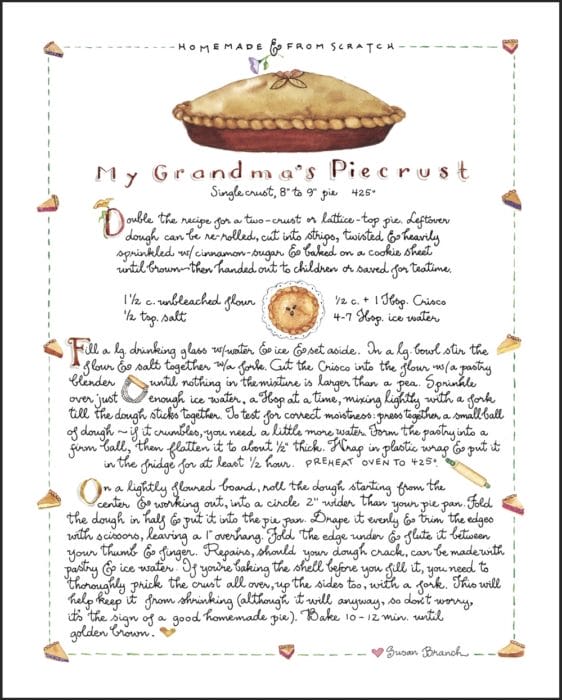 HOMEMADE & FROM SCRATCH
My Grandma's Piecrust
Single crust, 8" to 9" pie 425°
Double the recipe for a two-crust or lattice-top pie. Leftover
dough can be re-rolled, cut into strips, twisted & heavily
sprinkled w/cinnamon-sugar & baked on a cookie sheet
until brown—then handed out to children or saved for teatime.
1 1/2 c. unbleached flour 1/2 c. + 1 Tbsp. Crisco
1/2 tsp. salt 4-7 Tbsp. ice water
Fill a lg drinking glass w/water & ice & set aside. In a lg. bowl stir the
flour & salt together w/a fork. Cut the Crisco into the flour w/a pastry
blender until nothing in the mixture is larger than a pea. Sprinkle
over just enough ice water, a Tbsp at a time, mixing lightly with a fork
till the dough sticks together. To test for correct moistness: press together a small ball
of dough ~ if it crumbles, you need a little more water. Form the pastry into a
firm ball, then flatten it to about 1/2" thick. Wrap in plastic wrap & put it
in the fridge for at least 1/2 hour. PREHEAT OVEN TO 425°
On a lightly floured board, roll the dough starting from the
center & working out, into a circle 2" wider than your pie pan. Fold
the dough in half & put it into the pie pan. Drape it evenly & trim the edges
with scissors, leaving a 1" overhang. Fold the edge under & flute it between
your thumb & finger. Repairs, should your dough crack, can be made with
pastry & ice water. If you're baking the shell before you fill it, you need to
thoroughly prick the crust all over, up the sides too, with a fork. This will
help keep it from shrinking (although it will anyway, so don't worry,
it's the sign of a good homemade pie). Bake 10-12 min. until
golden brown.
Susan Branch